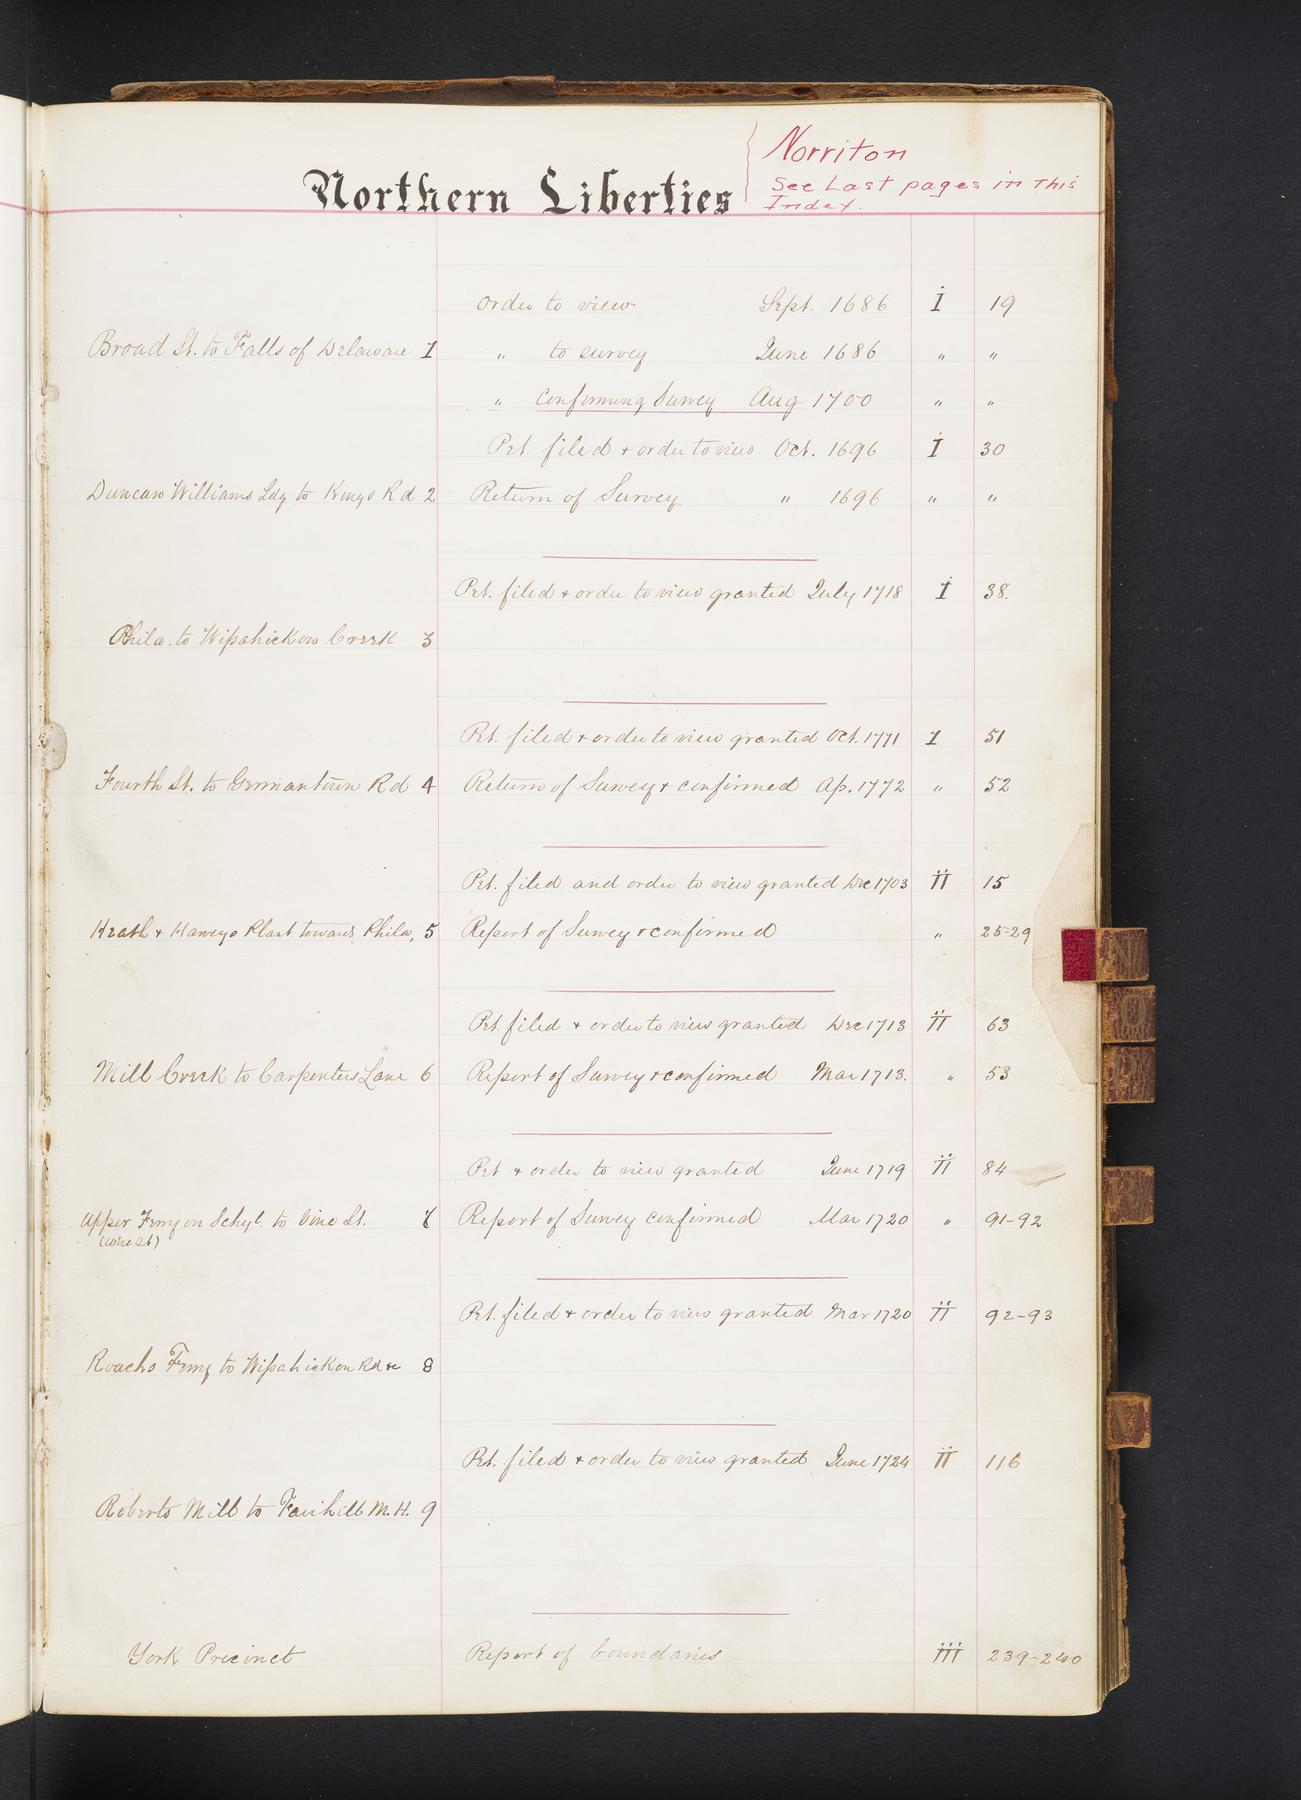 Norriton
Northern Liberties
See Last pages in this
Index.
Order to view Sept. 1686 I 19
Broad St. to Falls of Delaware 1 " to survey June 1686 " "
" Confirming Survey Aug 1700 " "
Pet. filed + order to view Oct. 1696 I 30
Duncan Williams Ldg to Kings Rd 2 Return of Survey " 1696 " "
Pet. filed + order to view granted July 1718 I 38.
Phila. to Wissahickon Creek 3
Pet. filed + order to view granted Oct. 1771 I 51
Fourth St. to Germantown Rd 4 Return of Survey + confirmed Ap. 1772 " 52
Pet. filed and order to view granted Dec 1703 II 15
Heath + Harveys Plant towards Phila, 5 Report of Survey + confirmed " 25-29
Pet. filed + order to view granted Dec 1713 II 63
Mill Creek to Carpenters Lane 6 Report of Survey + confirmed Mar 1713. " 53
Pet + order to view granted June 1719 II 84
Upper Ferry on Schyl. to Vine St. 7 Report of Survey confirmed Mar 1720 " 91-92
Pet. filed + order to view granted Mar 1720 II 92-93
Roachs Ferry to Wissahickon Rd &c 8
Pet. filed + order to view granted June 1724 II 116
Roberts Mill to Fairhill M.H. 9
York Precinct Report of boundaries III 239-240
N
O
P
R
V